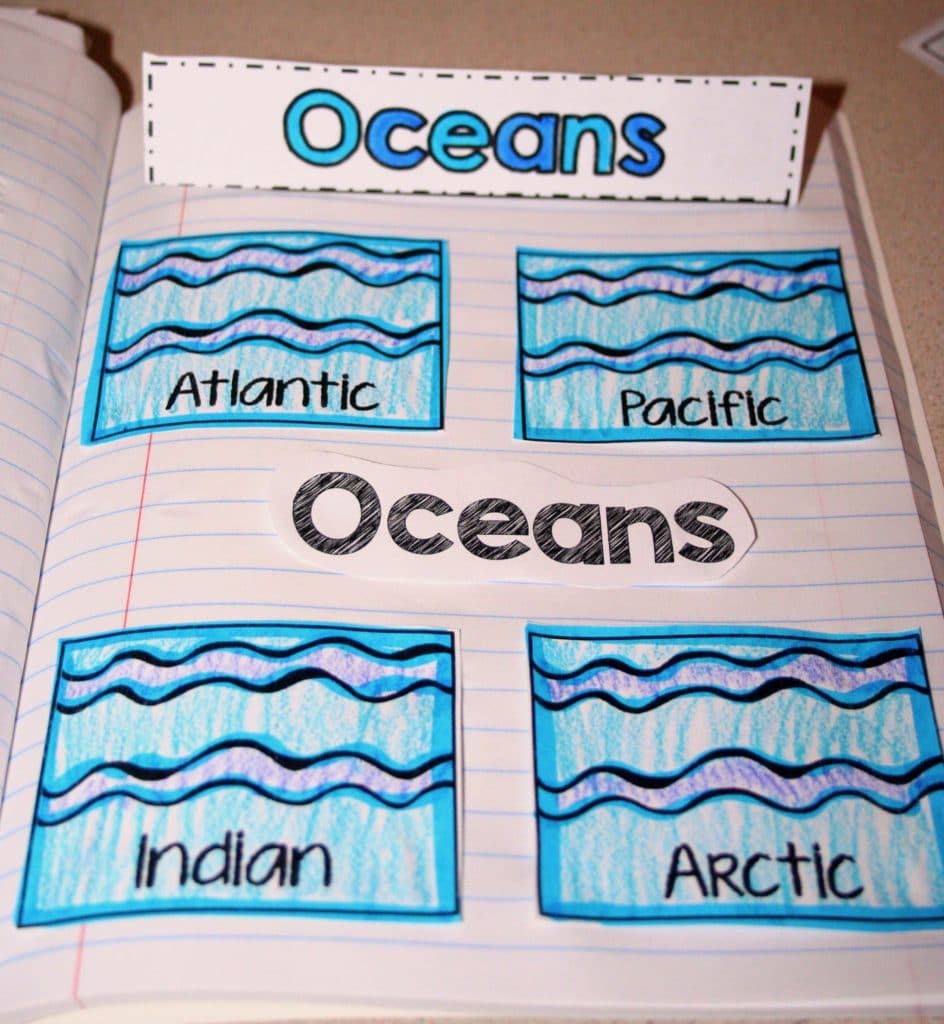 Oceans
Atlantic
Pacific
Oceans
Indian
Arctic